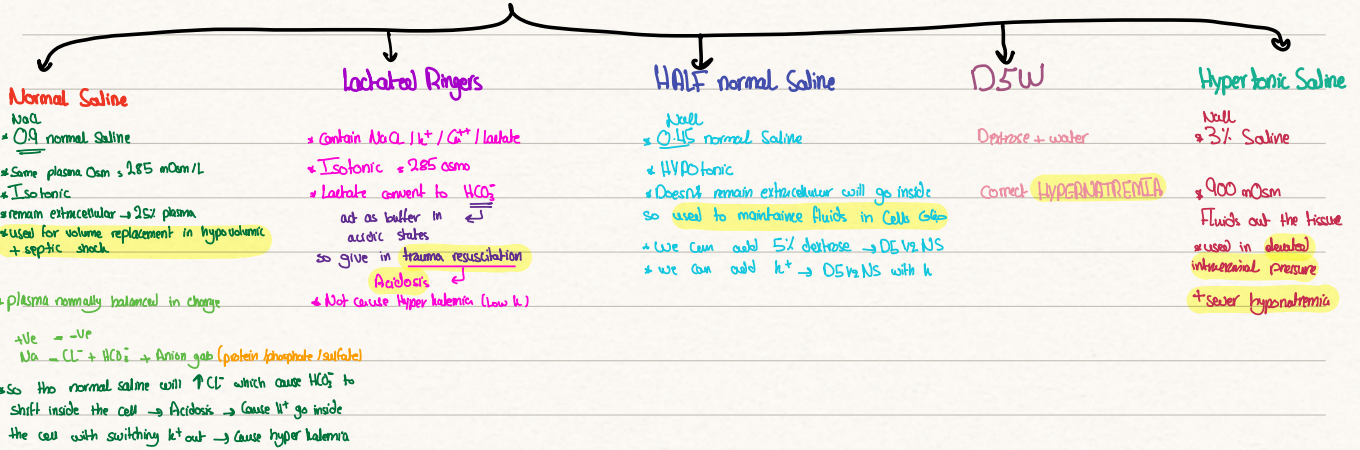 Normal Saline
NaCl
* 0.9 normal Saline
* Same plasma Osm = 285 mOsm/L
* Isotonic
* remain extracellular → 25% plasma
* used for volume replacement in hypovolumic
+ septic shock
* plasma normally balanced in charge
+Ve = -Ve
Na = CL⁻ + HCO₃⁻ + Anion gab (protein/phosphate/sulfate)
* So tho normal saline will ↑CL⁻ which cause HCO₃⁻ to
shift inside the cell → Acidosis → Cause H⁺ go inside
the cell with switching k⁺ out → Cause hyper kalemia
Lactated Ringers
* Contain NaCL / k⁺ / Ca⁺⁺ / lactate
* Isotonic = 285 osmo
* Lactate convent to HCO₃⁻
act as buffer in
acidic states
so give in trauma resuscitation
Acidosis
* Not cause Hyper kalemia (low k)
HALF normal Saline
Nacl
* 0.45 normal Saline
* HYPOtonic
* Doesn't remain extracellular will go inside
so used to maintaince fluids in Cells
* we can add 5% dextrose → D5 1/2 NS
* we can add k⁺ → D5 1/2 NS with k
D5W
Dextrose + water
Correct HYPERNATREMIA
Hypertonic Saline
Nacl
* 3% Saline
* 900 mOsm
Fluids out the tissue
* used in elevated
intracrainial pressure
+ sever hyponatremia